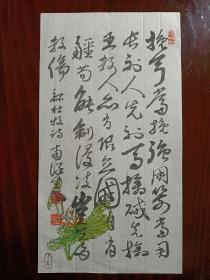 挽弓當挽強用箭當用
長射人先射馬擒賊先擒
王殺人亦有限立國自有
疆苟能制侵凌豈在多
殺傷 錄杜 詩